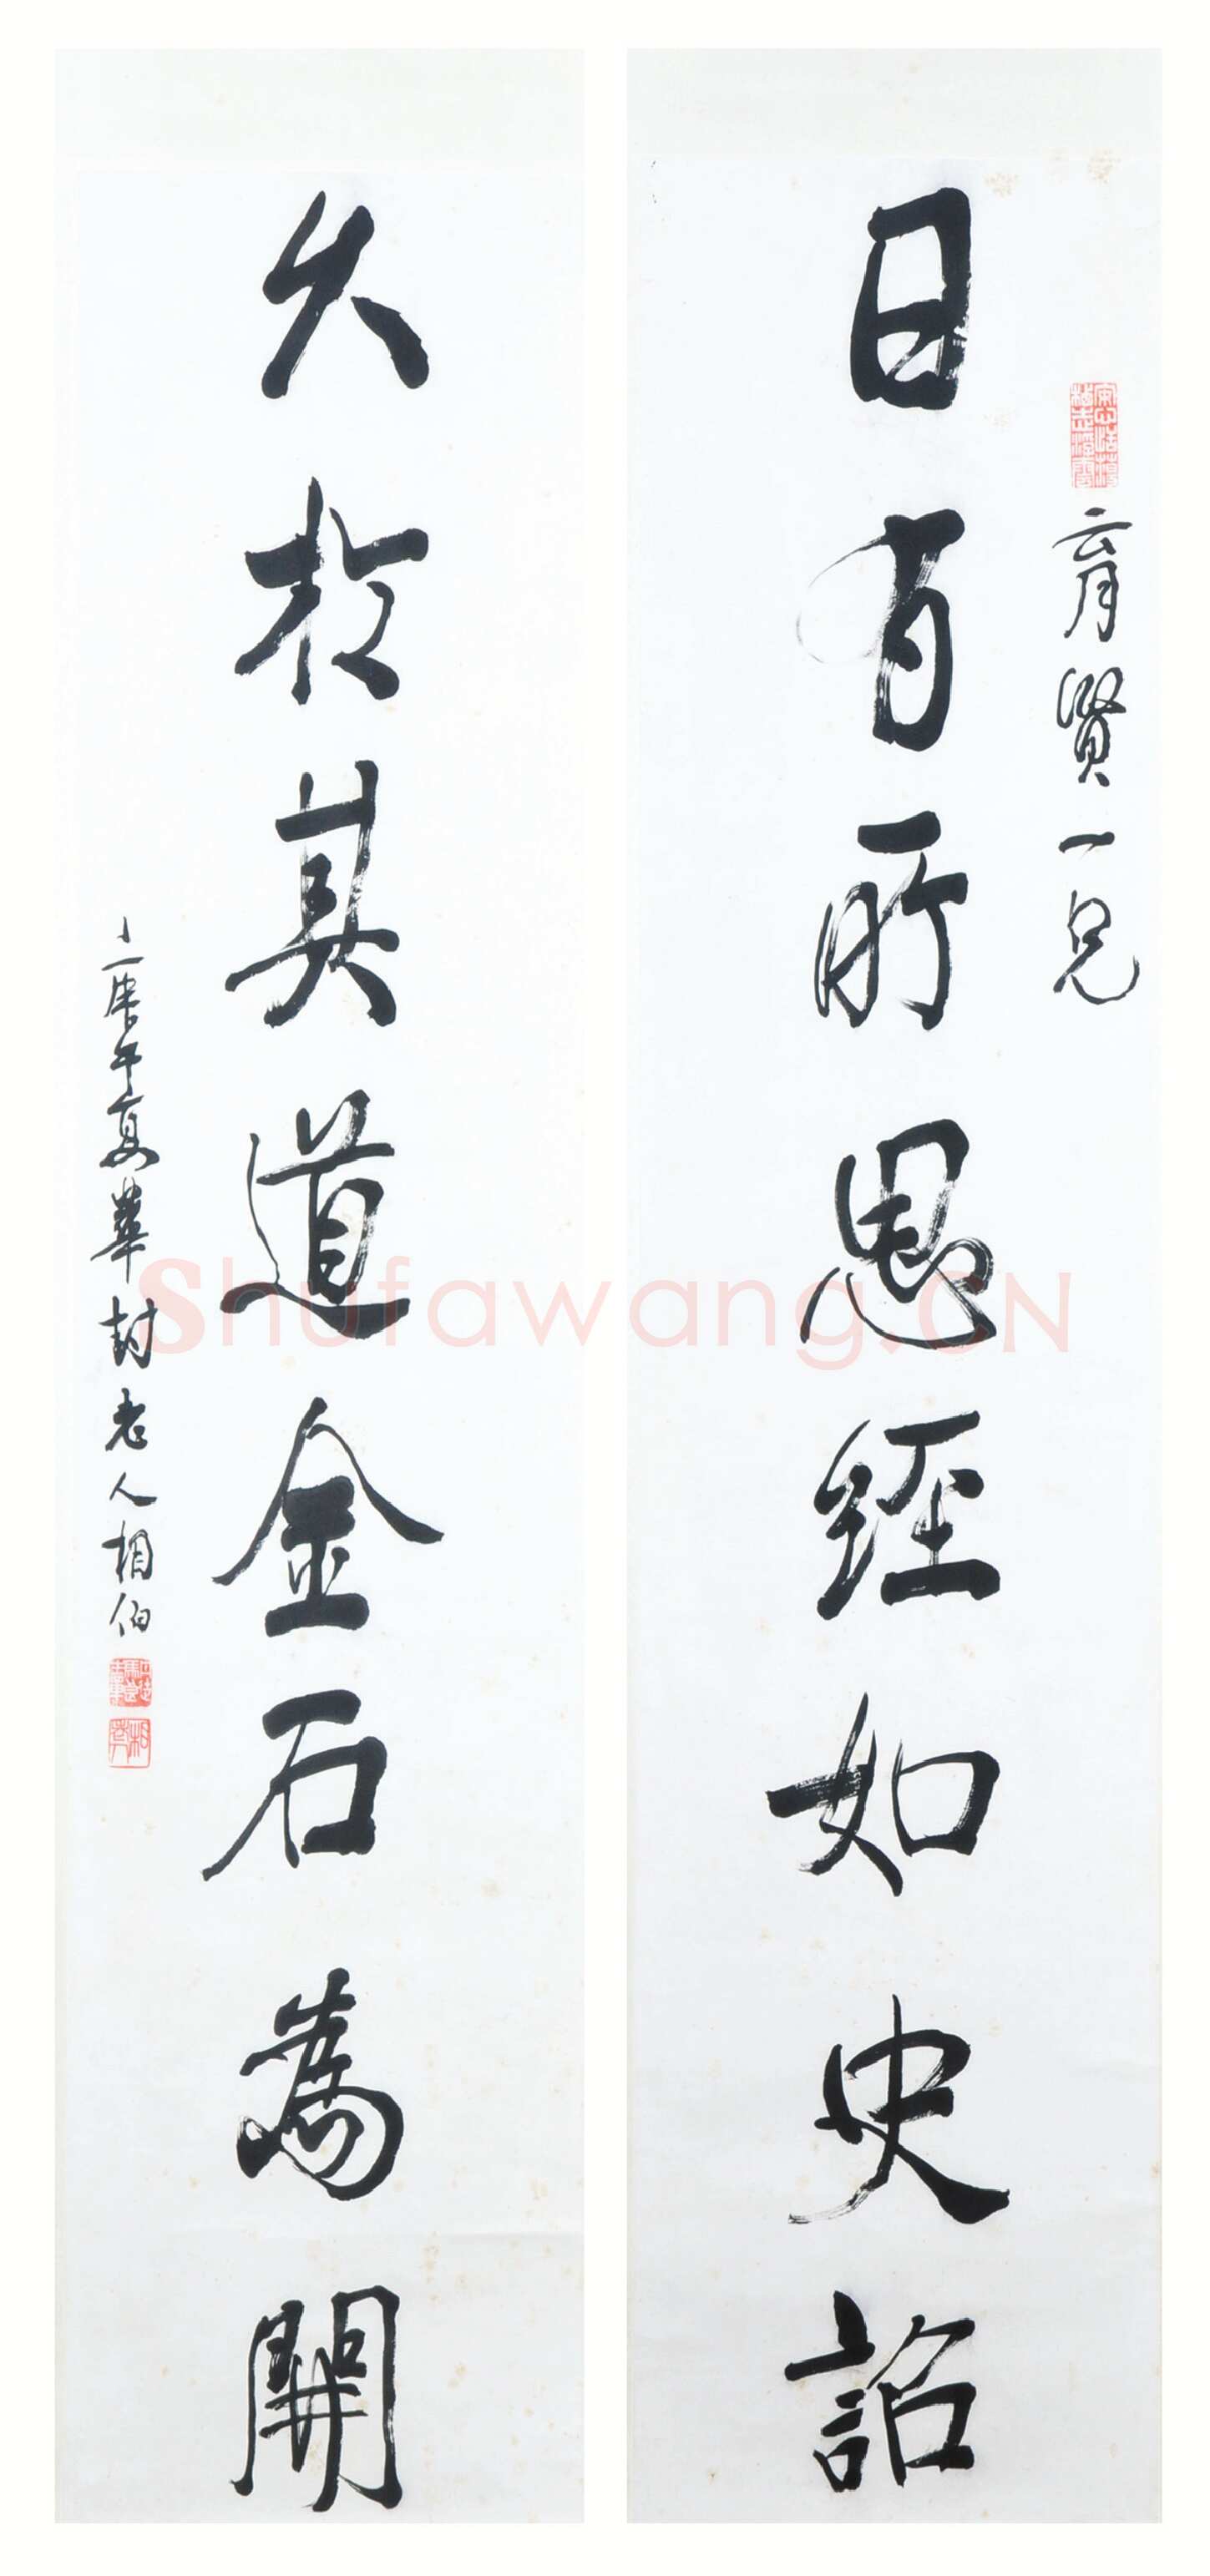 育賢一兄
日有所思經如史詔
久於其道金石為開
上庚午夏華封老人相伯
Shufawang.CN